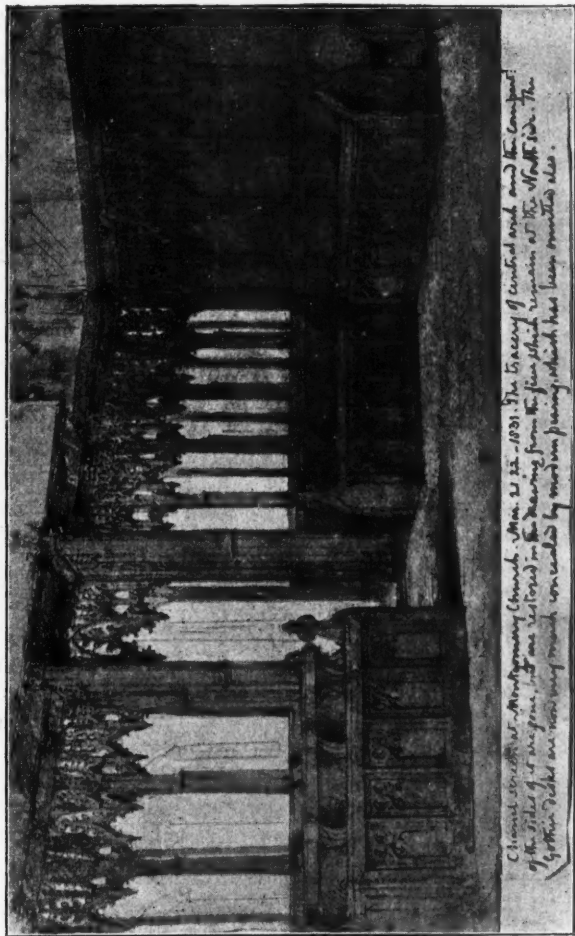 Chancel screen at Montgomery Church. Mon. 21 22 - 1831. The tracery of central arch and the compart.
of the sides of it are gone, but are restored in the drawing from the few which remain at the North side. The
Gothic desks are now very much concealed by modern pewing which has been omitted also.